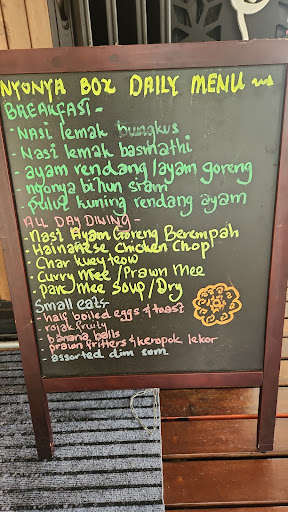 NYONYA BOX DAILY MENU
BREAKFAST -
- Nasi lemak bungkus
- Nasi lemak basmathi
- ayam rendang /ayam goreng
nyonya bihun siam
- Pulut kuning rendang ayam
ALL DAY DINING -
- Nasi Ayam Goreng Berempah
- Hainanese Chicken Chop
- Char Kuey teow
- Curry Mee /Prawn Mee
- Pan Mee Soup /Dry
Small eats-
- half boiled eggs & toast
- rojak fruity
- banana balls
- prawn fritters & keropok lekor
- assorted dim sum